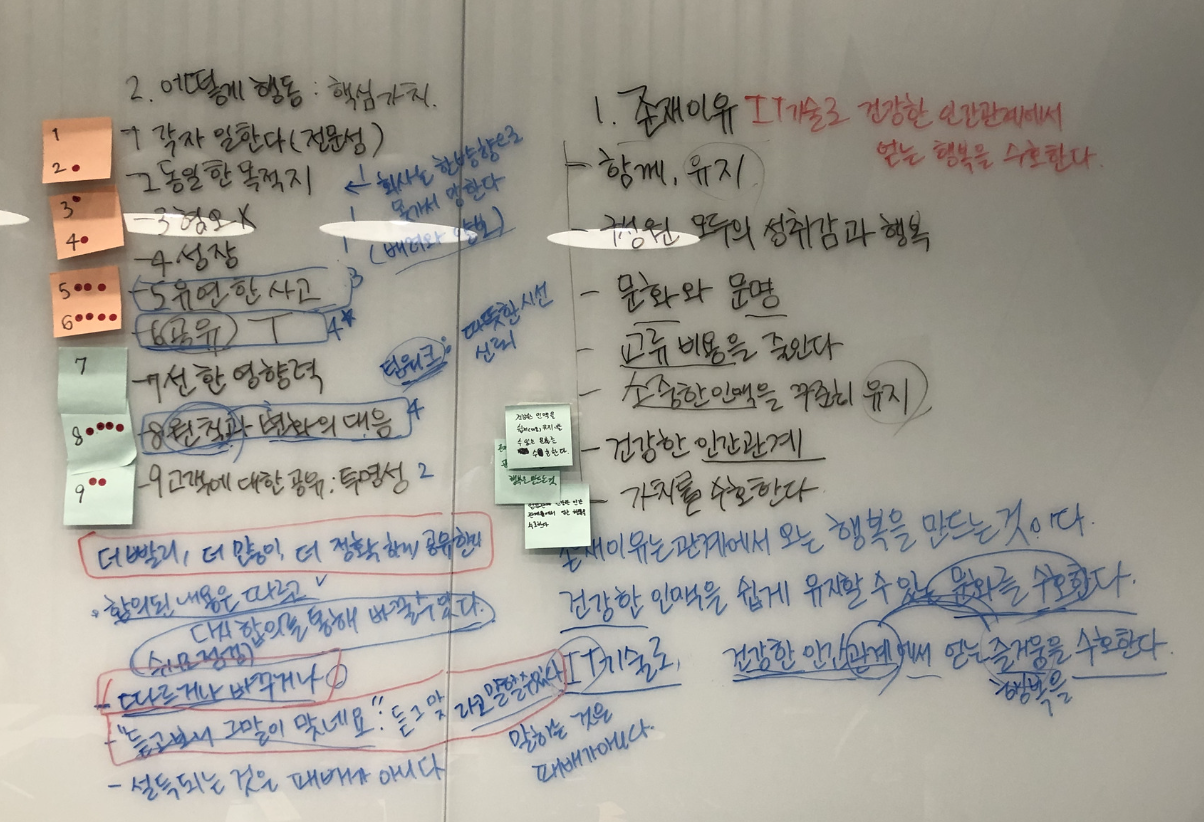 2. 어떻게 행동 : 핵심가치.
1 각자 일한다 (전문성)
2 동일한 목적지
← 회사는 한방향으로
못가서 망한다
(배려와 양보)
-3 협오 X
-4 성장
-5 유연한 사고 3
6 공유 T 4*
팀워크: 따뜻한 시선
신뢰
-7 선한 영향력
-8 원칙과 변화의 대응 4
-9 고객에 대한 공유: 투명성 2
1
2
3
4
5
6
7
8
9
더 빨리, 더 많이, 더 정확하게 공유한다
. 합의된 내용은 따르고
다시 합의를 통해 바꿀 수 있다.
- 따르거나 바꾸거나
- "듣고보니 그말이 맞네요" 라고 말할 수 있다
- 설득되는 것은 패배가 아니다
말하는 것은
패배가 아니다.
1. 존재이유 IT기술로 건강한 인간관계에서
얻는 행복을 수호한다.
- 함께, 유지
- 구성원 모두의 성취감과 행복
- 문화와 문명
- 교류 비용을 줄인다
- 소중한 인맥을 꾸준히 유지
- 건강한 인간관계
- 가치를 수호한다
건강한 인맥을
수 있는 문화를
수호한다.
행복을 만드는 것
존재이유는 관계에서 오는 행복을 만드는 것이다.
건강한 인맥을 쉽게 유지할 수 있는 문화를 수호한다.
IT기술로, 건강한 인간관계에서 얻는 즐거움을 수호한다.
행복을